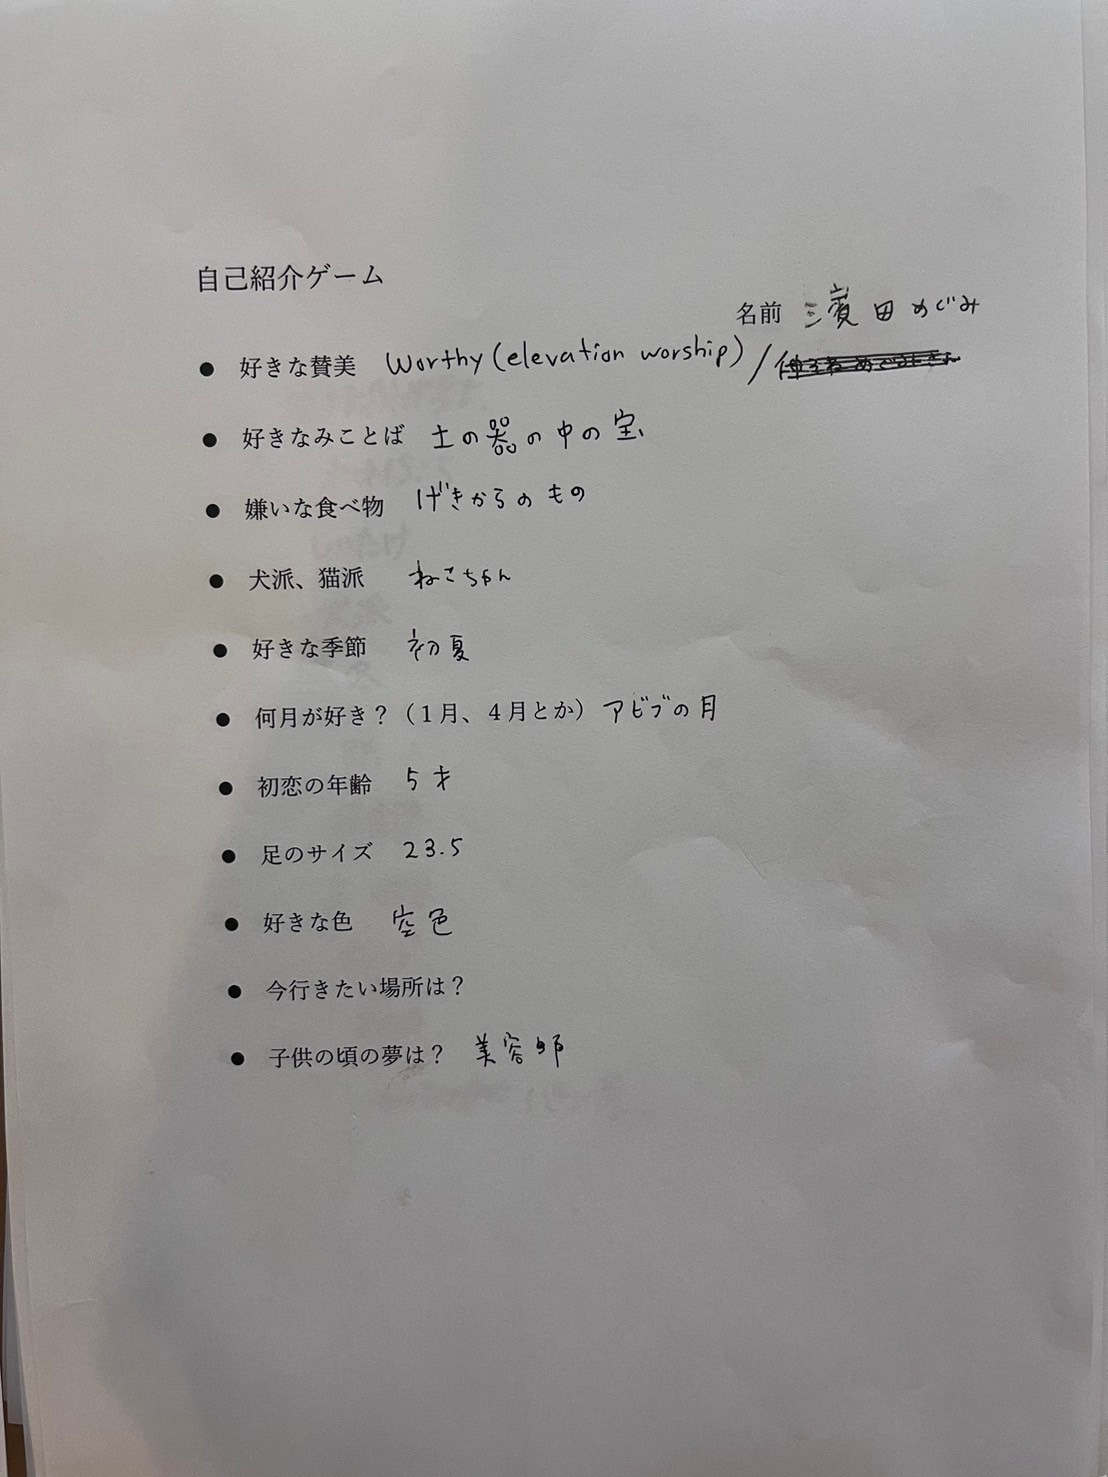 自己紹介ゲーム
名前 濱田めぐみ
● 好きな賛美 Worthy (elevation worship) /
● 好きなみことば 土の器の中の宝
● 嫌いな食べ物 げきからのもの
● 犬派、猫派 ねこちゃん
● 好きな季節 初夏
● 何月が好き？（１月、４月とか） アビブの月
● 初恋の年齢 5才
● 足のサイズ 23.5
● 好きな色 空色
● 今行きたい場所は？
● 子供の頃の夢は？ 美容師